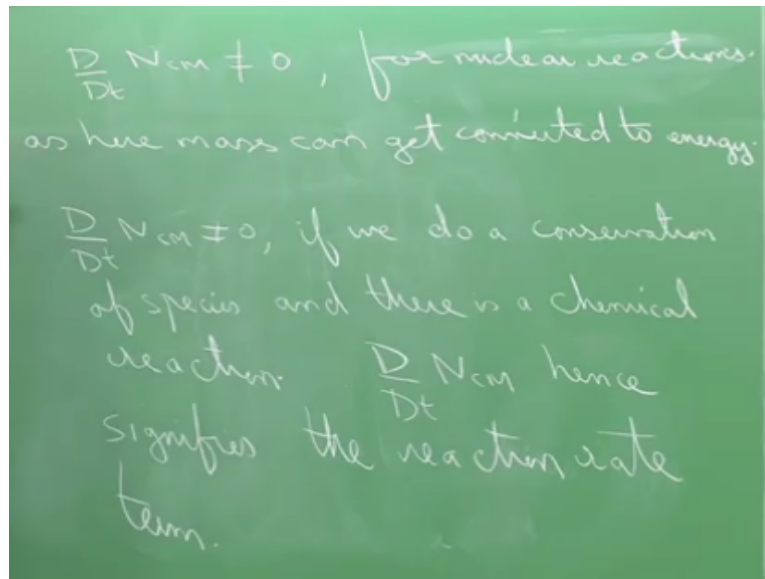 D/Dt N_CM ≠ 0, for nuclear reactions.
as here mass can get converted to energy.
D/Dt N_CM ≠ 0, if we do a conservation
of species and there is a chemical
reaction. D/Dt N_CM hence
signifies the reaction rate
term.